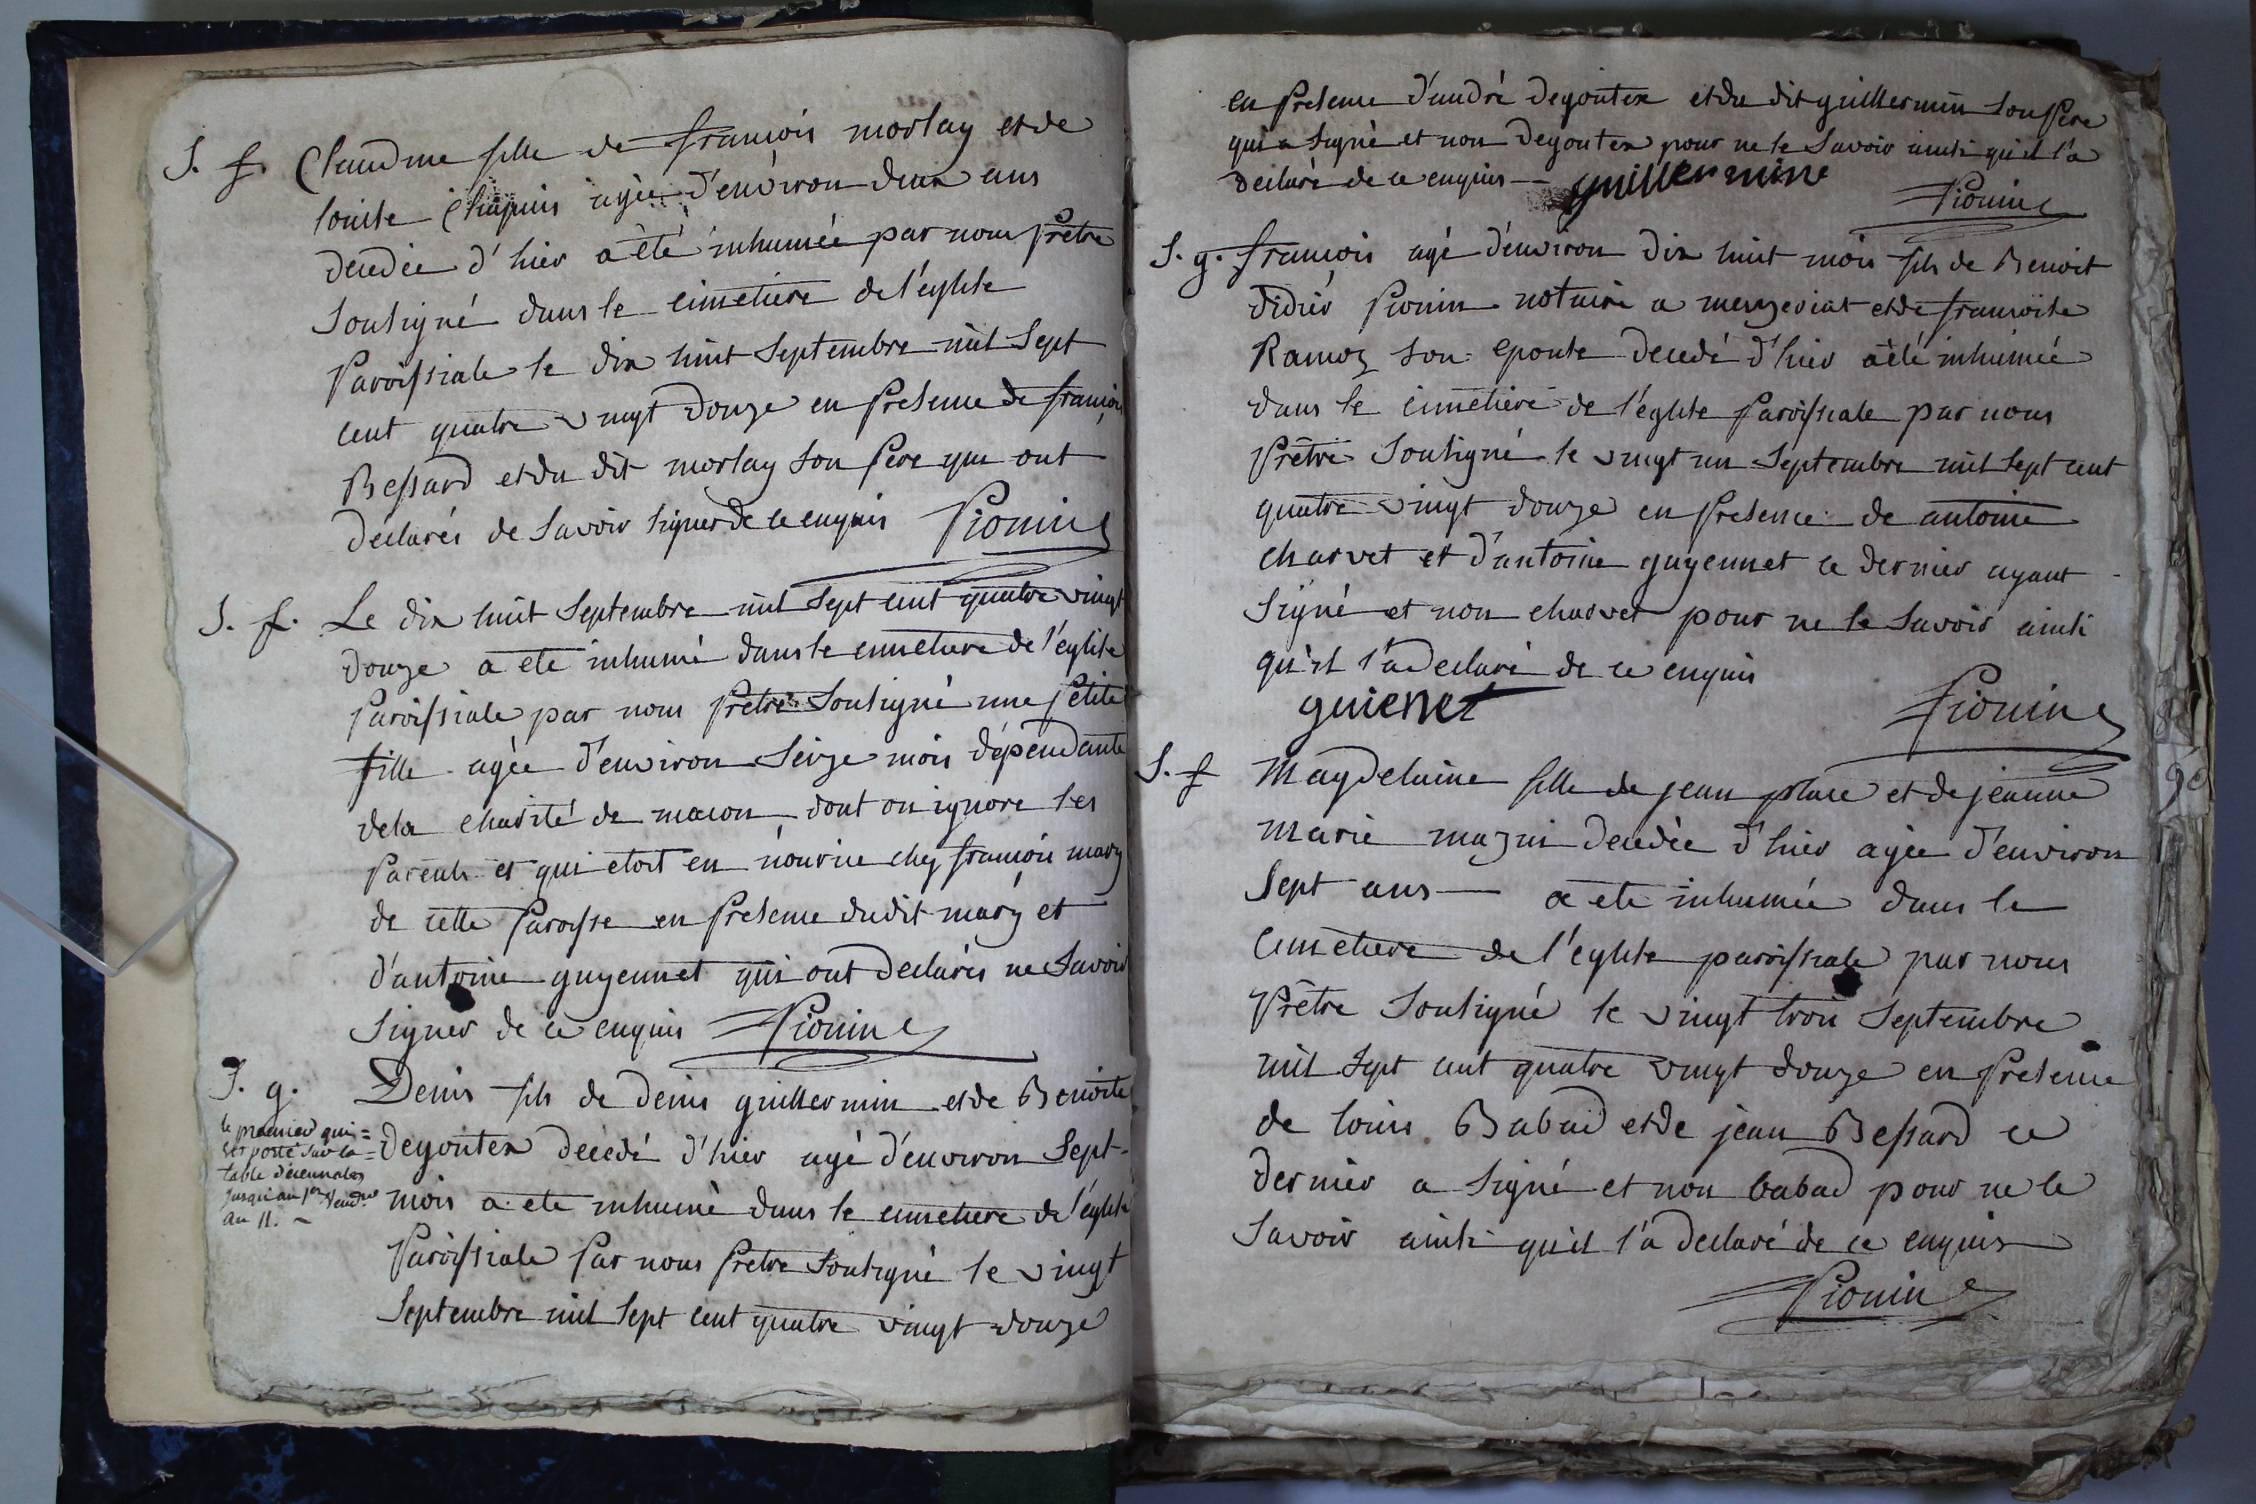 S. f. Claudine fille de françois morlay et de
louise Chapuis agée d'environ deux ans
decedée d'hier a été inhumée par nous prêtre
Soussigné dans le cimetiere de l'eglise
Paroissiale le dix huit Septembre mil Sept
cent quatre vingt douze en presence de françois
Bessard et du dit morlay son pere qui ont
déclarés de Savoir signer de ce enquis Pionin
S. f. Le dix huit Septembre mil Sept cent quatre vingt
douze a eté inhumé dans le cimetiere de l'église
paroissiale par nous prêtre Soussigné une petite
fille agée d'environ Seize mois dépendante
de la charité de macon dont on ignore les
parents et qui etoit en nourice chez françois mary
de cette paroisse en presence dudit mary et
d'antoine guyennet qui ont declarés ne Savoir
Signer de ce enquis Pionin
S. g. Denis fils de denis guillermin et de Benoite
le premier qui =
est porté sur la =
table décennales
jusqu'au 1er Vendre
an 11. ~
degoutex decedé d'hier agé d'environ Sept-
mois a eté inhumé dans le cimetiere de l'église
Paroissiale Par nous prêtre Soussigné le vingt
Septembre mil Sept cent quatre vingt douze
en presence d'andré degoutex et du dit guillermin son pere
qui a signé et non degoutex pour ne le savoir ainsi qu'il l'a
declaré de ce enquis — guillermine
Pionin
S. g. françois agé d'environ dix huit mois fils de Benoit
didier Pionin notaire a mezeriat et de françoise
Ramoz son epouse decedé d'hier a été inhumée
dans le cimetiere de l'eglise Paroissiale par nous
Prêtre Soussigné le vingt un Septembre mil Sept cent
quatre vingt douze en presence de antoine
charvet et d'antoine guyennet ce dernier ayant
Signé et non charvet pour ne le Savoir ainsi
qu'il l'a declaré de ce enquis
guienet Pionin
S. f Magdelaine fille de jean place et de jeanne
Marie mazui decedée d'hier agée d'environ
Sept ans — a eté inhumée dans le
cimetiere de l'église paroissiale par nous
Prêtre Soussigné le vingt trois Septembre
mil Sept cent quatre vingt douze en presence
de louis Babad et de jean Bessard ce
dernier a Signé et non babad pour ne le
Savoir ainsi qu'il l'a declaré de ce enquis
Pionin